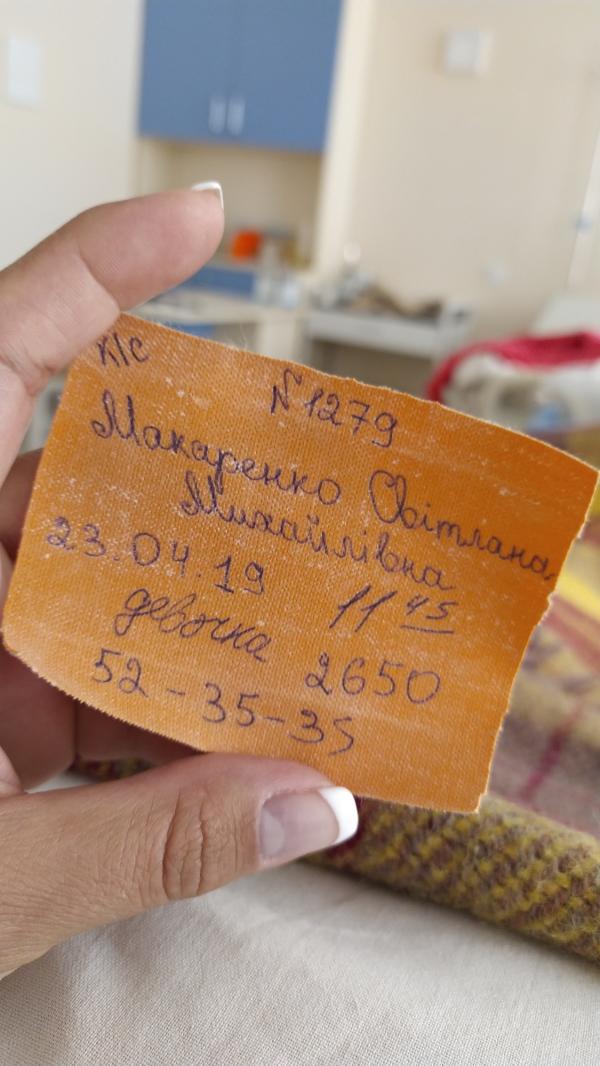 К/С
№1279
Макаренко Світлана
Михайлівна
23.04.19 11 45
девочка 2650
52-35-35